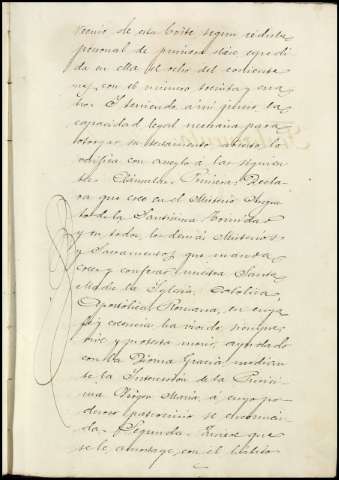 vecino de esta Corte segun cédula
personal de primera clase espedi-
da en ella el ocho del corriente
mes, con el número treinta y cua-
tro. I teniendo á mi juicio la
capacidad legal necesaria para
otorgar su testamento abierto, lo
verifica con arreglo á las siguien-
tes Cláusulas. Primera: Decla-
ra que cree en el Misterio Augus-
to de la Santísima Trinidad
y en todos los demás Misterios
y Sacramentos que manda
creer y confesar nuestra Santa
Madre la Iglesia, Católica,
Apostólica, Romana, en cuya
fé y creencia ha vivido siempre,
vive y protesta morir, ayudado
con la Divina Gracia, median-
te la Intercesión de la Purísi-
ma Virgen María, á cuyo po-
deroso patrocinio se encomien-
da. Segunda: Quiere que
se le amortaje con el hábito